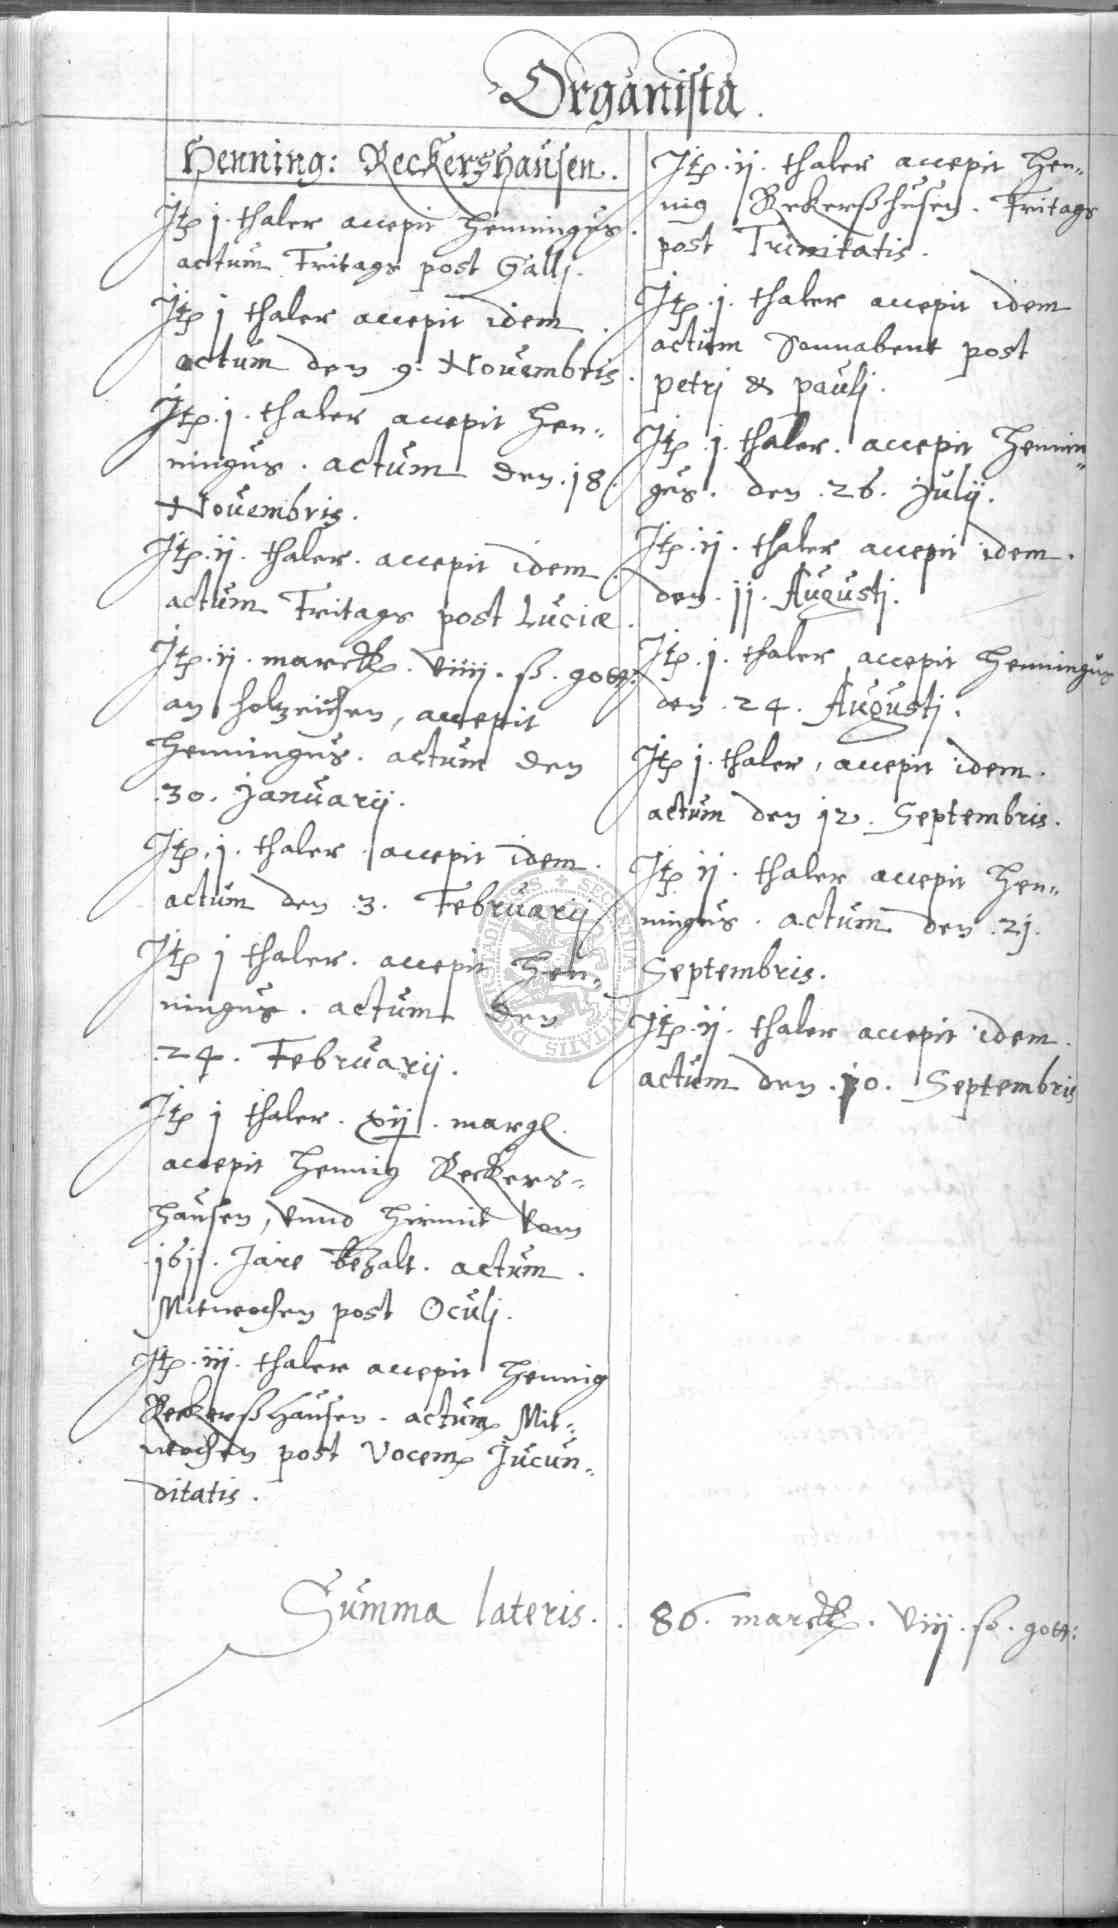 Organista.
Henning: Reckershausen.
Itp j. thaler accepit Henningus.
actum Fritags post Gallj.
Itp j thaler accepit idem.
actum den 9. Novembris.
Itp. j. thaler accepit Hen=
ningus. actum den. 18.
Novembris.
Itp. ij. thaler. accepit idem.
actum Fritags post Luciæ.
Itp. ij. marck. viiij. ß. gott:
an holtzeichen, accepit
Henningus. actum den
.30. Januarij.
Itp. j. thaler accepit idem.
actum den .3. Februarij
Itp j thaler. accepit Hen=
ningus. actum den
.24. Februarij.
Itp j thaler. xij. margl.
accepit Hennig Reckers=
hausen, vnnd hirmit vom
.1611. Jare bezalt. actum.
Mitwochen post Oculj.
Itp. iij. thaler accepit Hennig
Reckerßhausen. actum Mit=
wochen post Vocem Jucun=
ditatis.
Itp. ij. thaler accepit Hen=
nig Rekerßhusen. Fritags
post Trinitatis.
Itp. j. thaler accepit idem
actum Sonnabent post
petrj & paulj.
Itp. j. thaler. accepit Hennin=
gus. den .26. Julij.
Itp. ij. thaler accepit idem.
den. 11. Augustj.
Itp. j. thaler accepit Henningus
den .24. Augustj.
Itp j. thaler, accepit idem.
actum den 12. Septembris.
Itp. ij. thaler accepit Hen=
ningus. actum den .21.
Septembris.
Itp. ij. thaler accepit idem.
actum den .30. Septembris
Summa lateris. . 86. marck. viij. ß. gott:
SECRETUM CIVITATIS DUDERSTADIENSIS